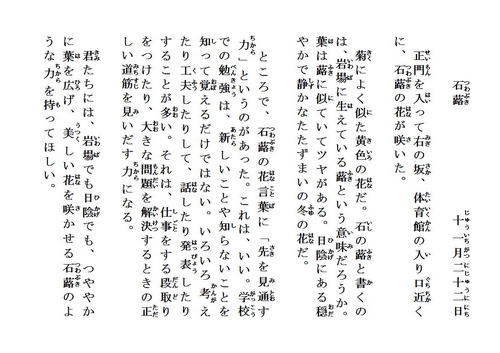 石蕗　十一月二十二日
正門をはいって右の坂、体育館の入り口近く
に、石蕗の花が咲いた。
菊によく似た黄色の花だ。石の蕗と書くの
は、岩場に生えている蕗という意味だろうか。
葉は蕗に似ていてツヤがある。日陰にある穏
やかで静かなたたずまいの冬の花だ。
ところで、石蕗の花言葉に「先を見通す
力」というのがあった。これは、いい。学校
での勉強は、新しいことや知らないことを
知って覚えるだけではない。いろいろ考え
たり工夫したりして、話したり発表したり
することが多い。それは、仕事をする段取り
をつけたり、大きな問題を解決するときの正
しい道筋を見いだす力になる。
君たちには、岩場でも日陰でも、つややか
に葉を広げ、美しい花を咲かせる石蕗のよ
うな力を持ってほしい。